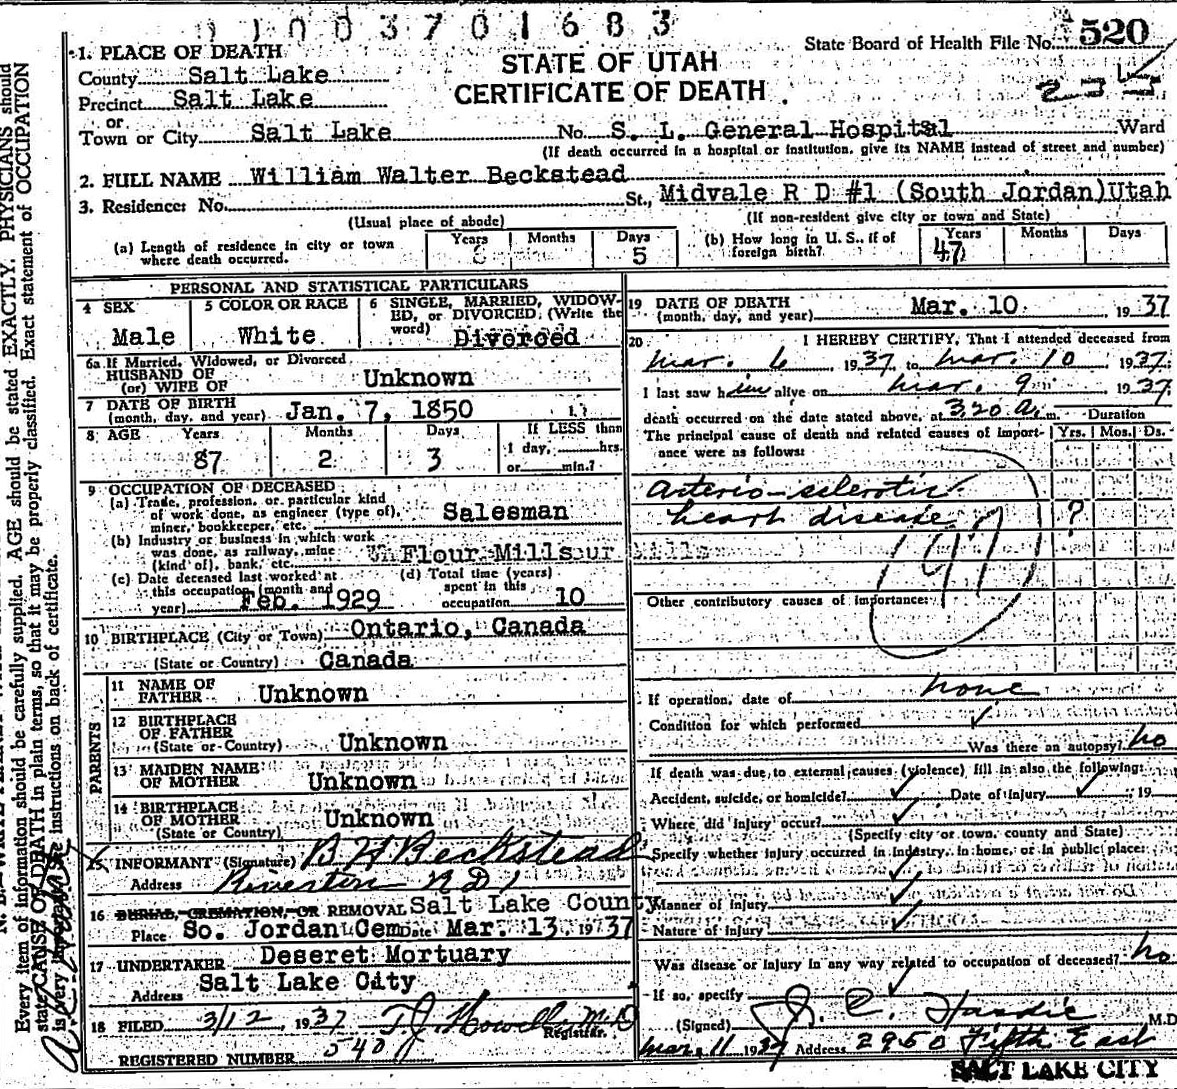 11003701683
State Board of Health File No. 520
1. PLACE OF DEATH
STATE OF UTAH
County Salt Lake
CERTIFICATE OF DEATH
Precinct Salt Lake
or
Town or City Salt Lake No. S. L. General Hospital Ward
(If death occurred in a hospital or institution, give its NAME instead of street and number)
2. FULL NAME William Walter Beckstead
3. Residence: No. St., Midvale R D #1 (South Jordan) Utah
(Usual place of abode) (If non-resident give city or town and State)
(a) Length of residence in city or town where death occurred. Years Months Days 5
(b) How long in U. S., if of foreign birth? Years 47 Months Days
PERSONAL AND STATISTICAL PARTICULARS
4 SEX Male
5 COLOR OR RACE White
6 SINGLE, MARRIED, WIDOWED, or DIVORCED (Write the word) Divorced
6a If Married, Widowed, or Divorced
HUSBAND OF
(or) WIFE OF Unknown
7 DATE OF BIRTH
(month, day, and year) Jan. 7, 1850
8 AGE Years Months Days If LESS than
87 2 3 1 day, hrs.
or min.?
9 OCCUPATION OF DECEASED
(a) Trade, profession, or particular kind
of work done, as engineer (type of),
miner, bookkeeper, etc. Salesman
(b) Industry or business in which work
was done, as railway, mine
(kind of), bank, etc. Flour Mills
(c) Date deceased last worked at
this occupation (month and
year) Feb. 1929
(d) Total time (years)
spent in this
occupation 10
10 BIRTHPLACE (City or Town) Ontario, Canada
(State or Country) Canada
PARENTS
11 NAME OF
FATHER Unknown
12 BIRTHPLACE
OF FATHER
(State or Country) Unknown
13 MAIDEN NAME
OF MOTHER Unknown
14 BIRTHPLACE
OF MOTHER
(State or Country) Unknown
15 INFORMANT (Signature) B H Beckstead
Address Riverton R D 1
16 BURIAL, CREMATION, OR REMOVAL Salt Lake County
Place So. Jordan Cem Date Mar. 13, 1937
17 UNDERTAKER Deseret Mortuary
Address Salt Lake City
18 FILED 3/12, 1937 T. J. Howells M.D
Registrar.
REGISTERED NUMBER 540
19 DATE OF DEATH
(month, day, and year) Mar. 10 1937
20 I HEREBY CERTIFY, That I attended deceased from
Mar. 6 1937, to Mar. 10 1937.
I last saw him alive on Mar. 9 1937
death occurred on the date stated above, at 3:20 A. m. Duration
The principal cause of death and related causes of importance were as follows: Yrs. Mos. Ds.
Arterio-sclerotic
heart disease ?
97
Other contributory causes of importance:
If operation, date of none
Condition for which performed
Was there an autopsy? no
If death was due to external causes (violence) fill in also the following:
Accident, suicide, or homicide? Date of injury 19
Where did injury occur?
(Specify city or town, county and State)
Specify whether injury occurred in industry, in home, or in public place:
Manner of injury
Nature of injury
Was disease or injury in any way related to occupation of deceased? no
If so, specify
(Signed) J. C. Hardie M.D.
Mar. 11 1937 Address 2950 Fifth East
SALT LAKE CITY
Every item of information should be carefully supplied. AGE should be stated EXACTLY. PHYSICIANS should
state CAUSE OF DEATH in plain terms, so that it may be properly classified. Exact statement of OCCUPATION
is very important. See instructions on back of certificate.